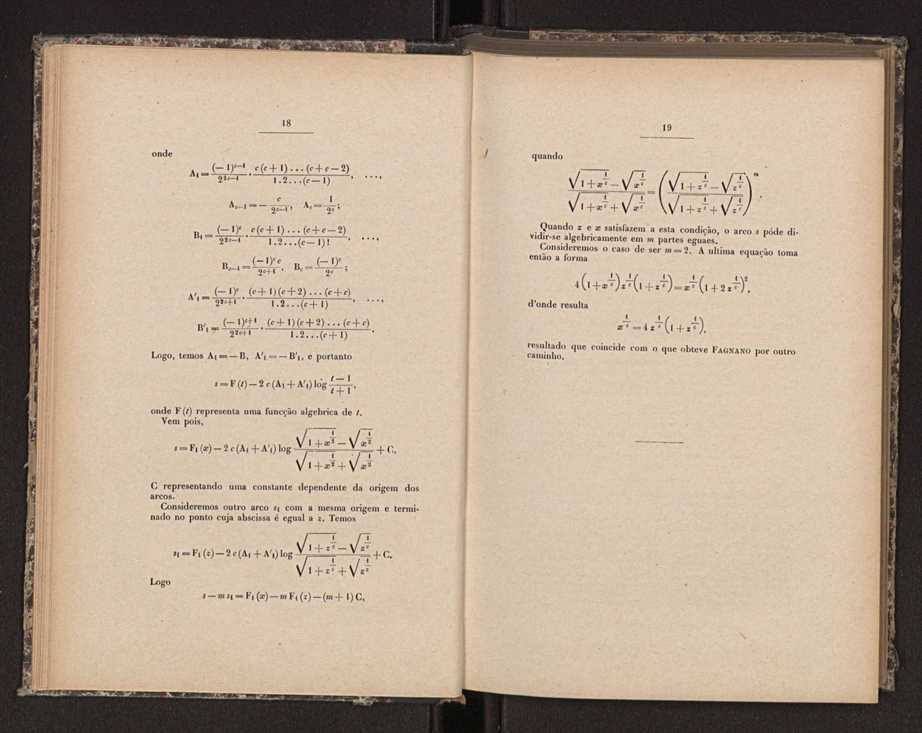 18
onde
A₁ = (— 1)^{c—1} / 2^{2c—1} · c (c + 1) . . . (c + c — 2) / 1 . 2 . . . (c — 1), . . . .,
A_{c—1} = — c / 2^{c—1}, A_c = 1 / 2^c ;
B₁ = (— 1)^c / 2^{2c—1} · c (c + 1) . . . (c + c — 2) / 1 . 2 . . . (c — 1) !, . . . .,
B_{c—1} = (— 1)^c c / 2^{c+1}, B_c = (— 1)^c / 2^c ;
A'₁ = (— 1)^c / 2^{2c+1} · (c + 1) (c + 2) . . . (c + c) / 1 . 2 . . . (c + 1), . . . .,
B'₁ = (— 1)^{c+1} / 2^{2c+1} · (c + 1) (c + 2) . . . (c + c) / 1 . 2 . . . (c + 1).
Logo, temos A₁ = — B, A'₁ = — B'₁, e portanto
s = F (t) — 2 c (A₁ + A'₁) log (t — 1) / (t + 1),
onde F (t) representa uma funcção algebrica de t.
Vem pois,
s = F₁ (x) — 2 c (A₁ + A'₁) log (√(1 + x^{1/2}) — √(x^{1/2})) / (√(1 + x^{1/2}) + √(x^{1/2})) + C,
C representando uma constante dependente da origem dos
arcos.
Consideremos outro arco s₁ com a mesma origem e termi-
nado no ponto cuja abscissa é egual a z. Temos
s₁ = F₁ (z) — 2 c (A₁ + A'₁) log (√(1 + z^{1/c}) — √(z^{1/c})) / (√(1 + z^{1/c}) + √(z^{1/2})) + C,
Logo
s — m s₁ = F₁ (x) — m F₁ (z) — (m + 1) C,
19
quando
(√(1 + x^{1/c}) — √(x^{1/c})) / (√(1 + x^{1/c}) + √(x^{1/c})) = ((√(1 + z^{1/c}) — √(z^{1/c})) / (√(1 + z^{1/c}) + √(z^{1/c})))^m.
Quando z e x satisfazem a esta condição, o arco s póde di-
vidir-se algebricamente em m partes eguaes.
Consideremos o caso de ser m = 2. A ultima equação toma
então a forma
4 (1 + x^{1/c}) z^{1/c} (1 + z^{1/c}) = x^{1/c} (1 + 2 z^{1/c})²,
d'onde resulta
x^{1/c} = 4 z^{1/c} (1 + z^{1/c}),
resultado que coincide com o que obteve FAGNANO por outro
caminho.